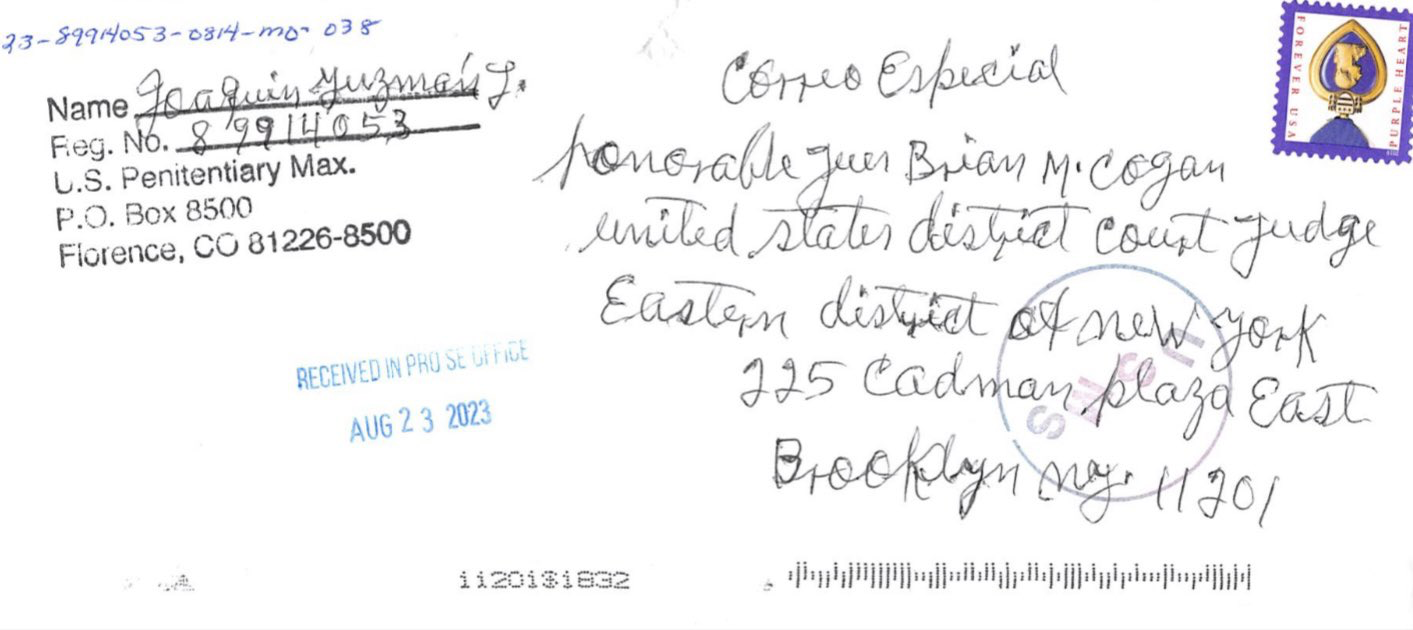 23-89914053-0814-mo-038
Name Joaquin Guzmán L.
Reg. No. 89914053
U.S. Penitentiary Max.
P.O. Box 8500
Florence, CO 81226-8500
RECEIVED IN PRO SE OFFICE
AUG 23 2023
Correo Especial
honorable juez Brian M. Cogan
united states district court judge
Eastern district of new york
225 Cadman plaza East
Brooklyn ny. 11201
FOREVER USA
PURPLE HEART
USMS
11201$1832